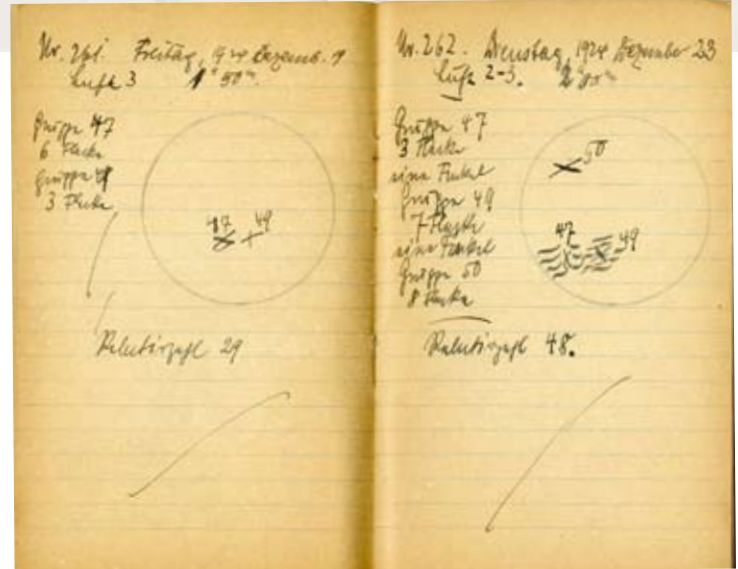 Nr. 261. Freitag, 1924 Dezemb.
Luft 3 1h 50m.
Gruppe 47
6 Flecke
Gruppe 49
3 Flecke
47 49
Relativzahl 29
Nr. 262. Dienstag, 1924 Dezember 23
Luft 2-3.
Gruppe 47
3 Flecke
eine Fackel
Gruppe 49
7 Flecke
eine Fackel
Gruppe 50
8 Flecke
50
47 49
Relativzahl 48.